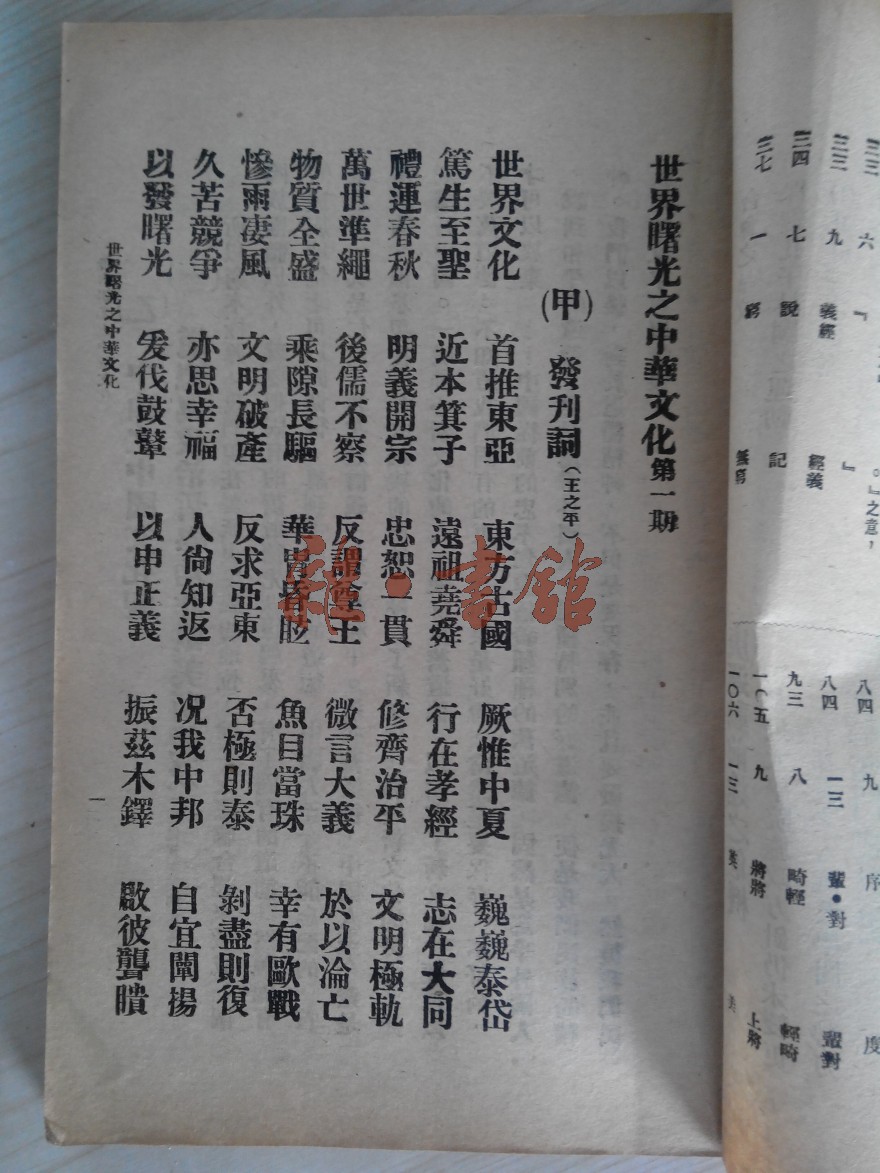 世界曙光之中華文化第一期
(甲) 發刊詞(王之平)
世界文化 首推東亞 東方古國 厥惟中夏 巍巍泰岱
篤生至聖 近本箕子 遠祖堯舜 行在孝經 志在大同
禮運春秋 明義開宗 忠恕一貫 修齊治平 文明極軌
萬世準繩 後儒不察 反謂尊王 微言大義 於以淪亡
物質全盛 乘隙長驅 華胄皆眩 魚目當珠 幸有歐戰
慘雨凄風 文明破產 反求亞東 否極則泰 剝盡則復
久苦競爭 亦思幸福 人尙知返 况我中邦 自宜闡揚
以發曙光 爰伐鼓鼙 以申正義 振茲木鐸 啟彼聾聵
世界曙光之中華文化
一
雜·書館
。』之意，
六 『 』 八四 九 序 度
三三 九 義經 經義 八四 一三 輩·對 輩對
三四 七 說 記 九三 八 畸輕 輕畸
三七 一 窮 無窮 一〇五 九 將將 上將
一〇六 一三